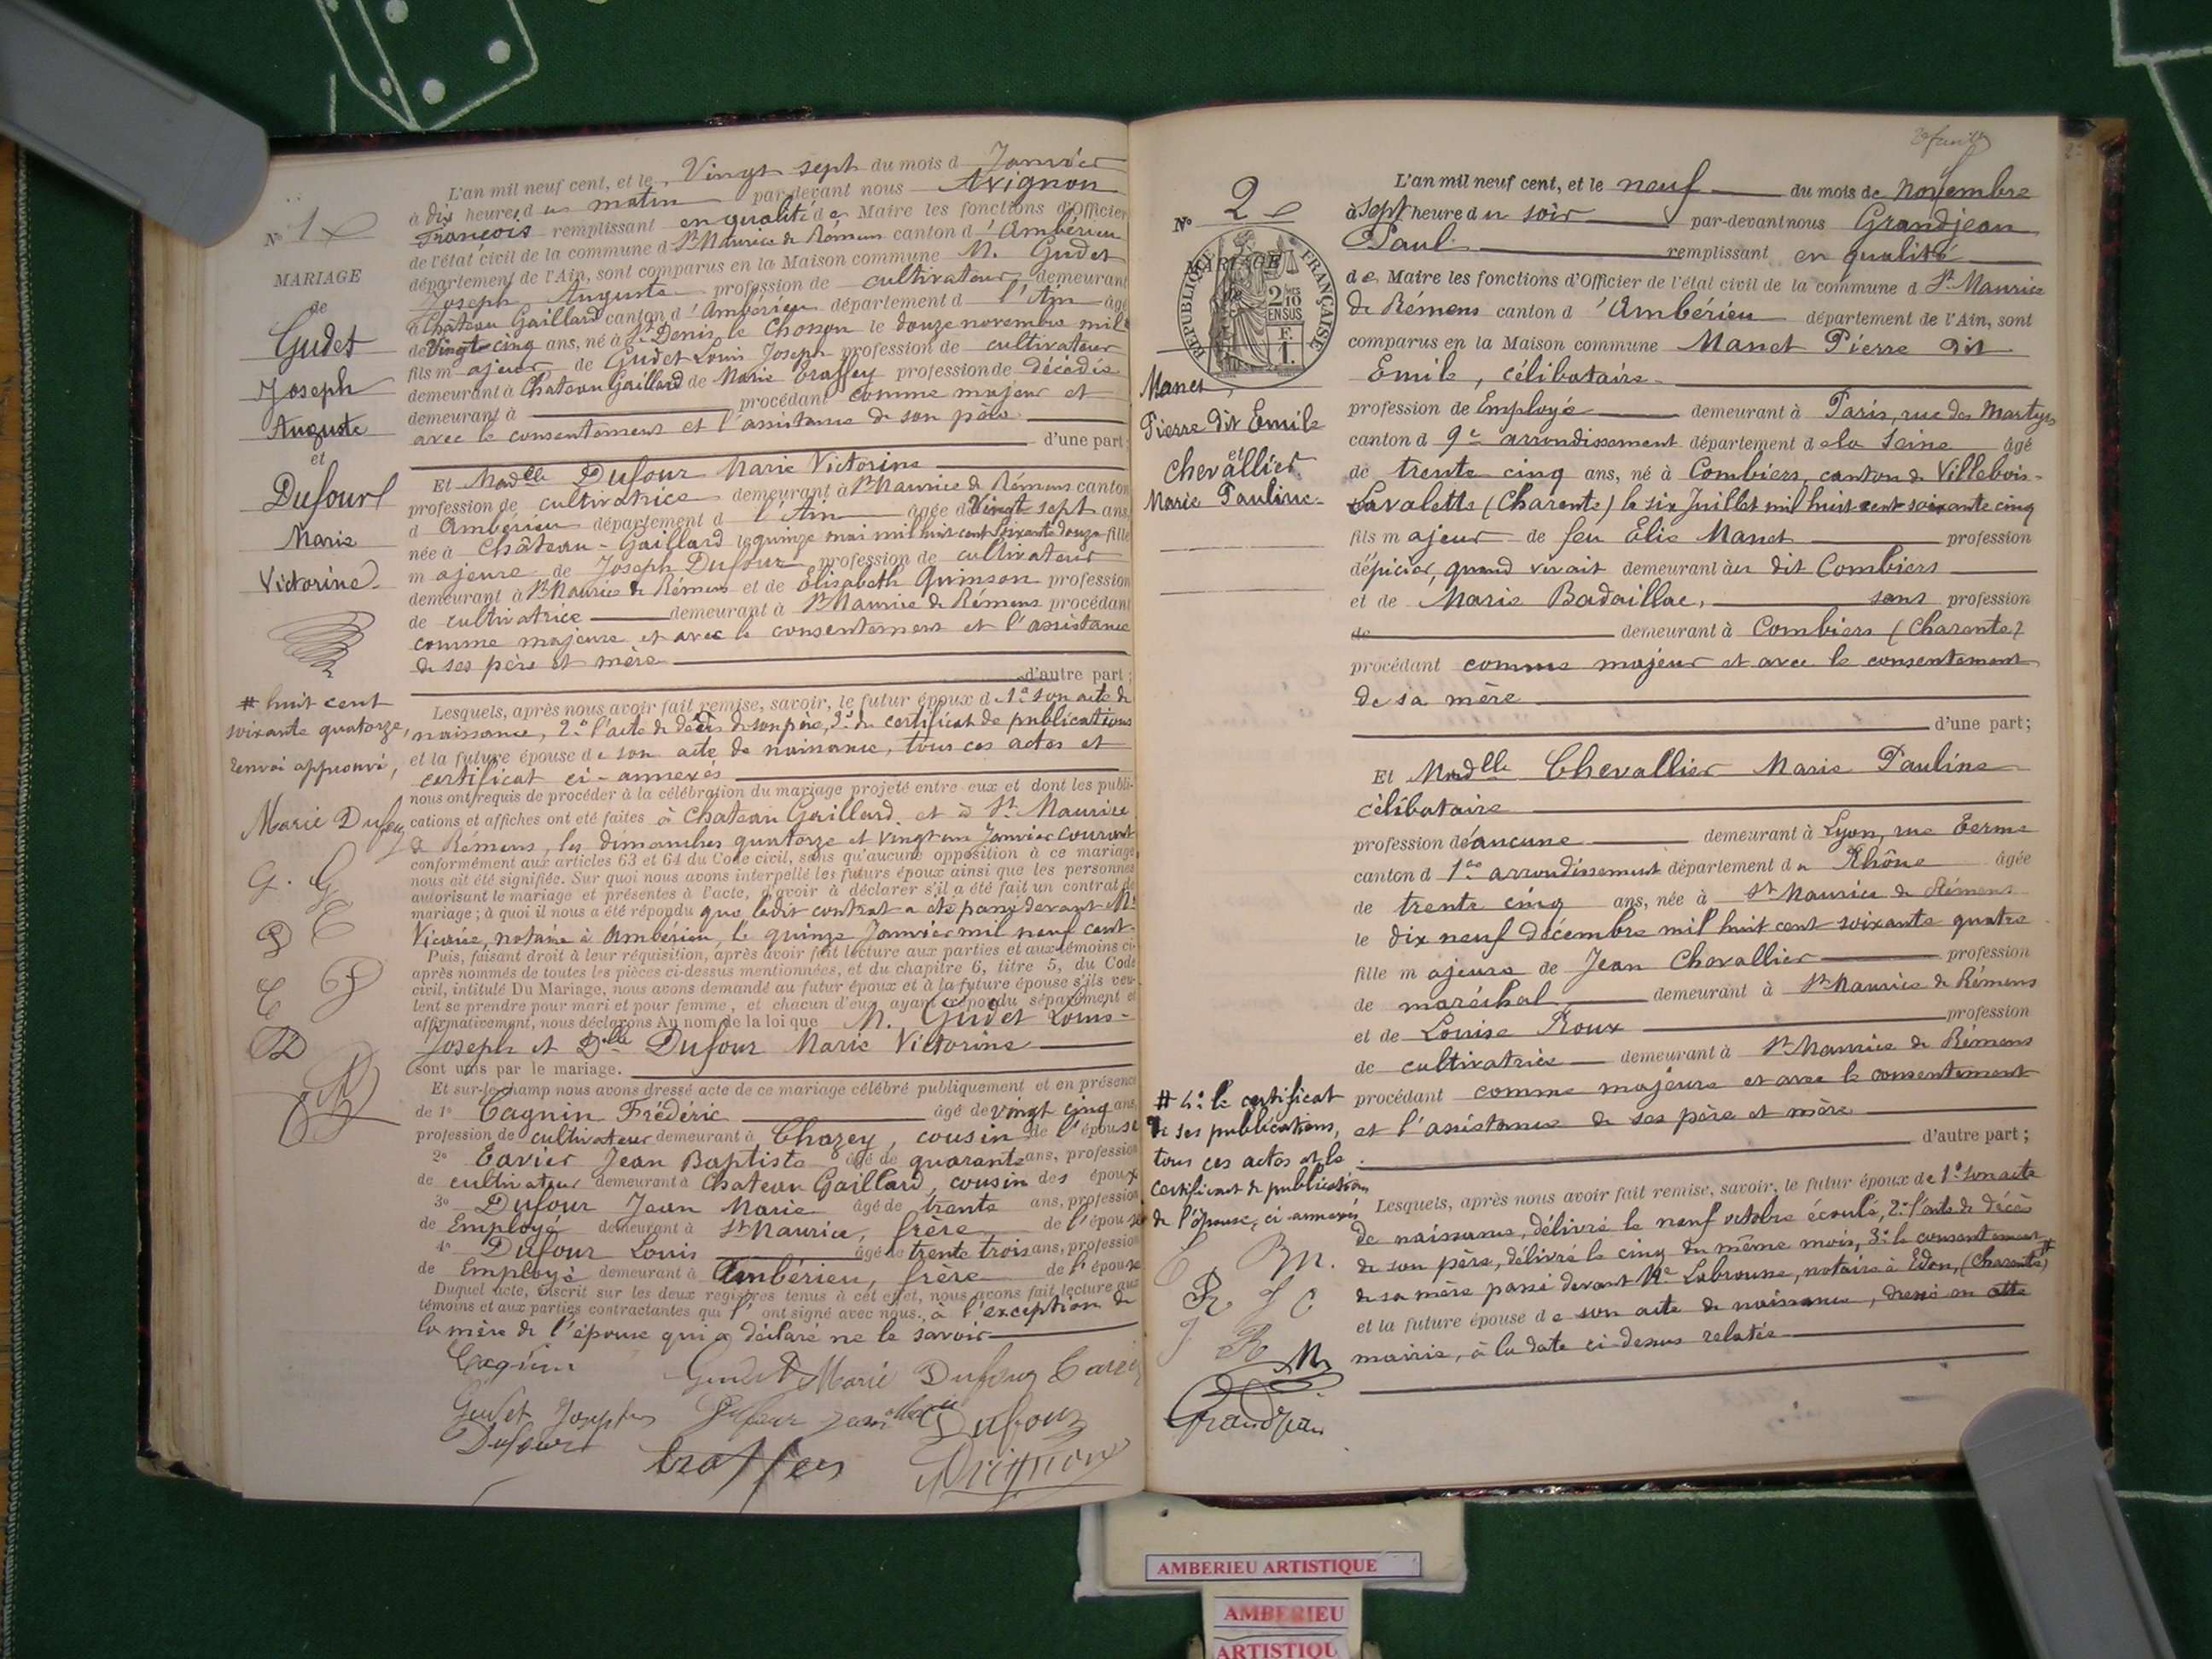 L'an mil neuf cent, et le Vingt sept du mois d Janvier
à dix heures du matin par-devant nous Avignon
François remplissant en qualité de Maire les fonctions d'Officier
de l'état civil de la commune d St Maurice de Rémens canton d'Ambérieu
département de l'Ain, sont comparus en la Maison commune M. Gudet
Joseph Auguste profession de cultivateur demeurant
à Château Gaillard canton d'Ambérieu département d l'Ain âgé
de Vingt cinq ans, né à St Denis le Chosson le douze novembre mil #
fils majeur de Gudet Louis Joseph profession de cultivateur
demeurant à Chateau Gaillard de Marie Traffey profession de décédée
demeurant à procédant comme majeur et
avec le consentement et l'assistance de son père
d'une part;
Et Madelle Dufour Marie Victorine
profession de cultivatrice demeurant à St Maurice de Rémens canton
d Ambérieu département d l'Ain âgée de Vingt sept ans
née à Château-Gaillard le quinze mai mil huit cent soixante douze fille
majeure de Joseph Dufour profession de cultivateur
demeurant à St Maurice de Rémens et de Elisabeth Quinson profession
de cultivatrice demeurant à St Maurice de Rémens procédant
comme majeure et avec le consentement et l'assistance
de ses père et mère
d'autre part;
Lesquels, après nous avoir fait remise, savoir, le futur époux d 1° son acte de
naissance, 2° l'acte de décès de son père, 3° du certificat de publications
et la future épouse de son acte de naissance, tous ces actes et
certificat ci-annexés
nous ont requis de procéder à la célébration du mariage projeté entre eux et dont les publi-
cations et affiches ont été faites à Chateau Gaillard et à St Maurice
de Rémens, les dimanches quatorze et vingt un Janvier courant
conformément aux articles 63 et 64 du Code civil, sans qu'aucune opposition à ce mariage
nous ait été signifiée. Sur quoi nous avons interpellé les futurs époux ainsi que les personnes
autorisant le mariage et présentes à l'acte, d'avoir à déclarer s'il a été fait un contrat de
mariage; à quoi il nous a été répondu que ledit contrat a été passé devant Me
notaire à Ambérieu, le quinze Janvier mil neuf cent.
Puis, faisant droit à leur réquisition, après avoir fait lecture aux parties et aux témoins ci-
après nommés de toutes les pièces ci-dessus mentionnées, et du chapitre 6, titre 5, du Code
civil, intitulé Du Mariage, nous avons demandé au futur époux et à la future épouse s'ils veu-
lent se prendre pour mari et pour femme, et chacun d'eux ayant répondu séparément et
affirmativement, nous déclarons Au nom de la loi que M. Gudet Louis-
Joseph et Dlle Dufour Marie Victorine
sont unis par le mariage.
Et sur-le-champ nous avons dressé acte de ce mariage célébré publiquement et en présence
de 1° Cagnin Frédéric âgé de vingt cinq ans,
profession de cultivateur demeurant à Chazey, cousin de l'épouse
2° Tavier Jean Baptiste âgé de quarante ans, profession
de cultivateur demeurant à Chateau Gaillard, cousin des époux
3° Dufour Jean Marie âgé de trente ans, profession
de Employé demeurant à St Maurice, frère de l'épouse
4° Dufour Louis âgé de trente trois ans, profession
de Employé demeurant à Ambérieu, frère de l'épouse
Duquel acte, inscrit sur les deux registres tenus à cet effet, nous avons fait lecture aux
témoins et aux parties contractantes qui l' ont signé avec nous, à l'exception de
la mère de l'épouse qui a déclaré ne le savoir
Cagnin Gudet Marie Dufour
Gudet Joseph Dufour Jean Marie Dufour
Dufour Traffey Avignon
N° 1
MARIAGE
de
Gudet
Joseph
Auguste
et
Dufour
Marie
Victorine
# huit cent
soixante quatorze,
renvoi approuvé,
Marie Dufour
2e feuillet
N° 2
MARIAGE
de
RÉPUBLIQUE FRANÇAISE
2/10
EN SUS
F.
1.
Manet
Pierre dit Emile
et
Chevallier
Marie Pauline
L'an mil neuf cent, et le neuf du mois de Novembre
à sept heure du soir par-devant nous Grandjean
Paul remplissant en qualité
de Maire les fonctions d'Officier de l'état civil de la commune d St Maurice
de Rémens canton d 'Ambérieu département de l'Ain, sont
comparus en la Maison commune Manet Pierre dit
Emile, célibataire
profession de Employé demeurant à Paris, rue des Martyrs
canton d 9e arrondissement département de la Seine âgé
de trente cinq ans, né à Combiers, canton de Villebois-
Lavalette (Charente) le six Juillet mil huit cent soixante cinq
fils majeur de feu Elie Manet profession
d'épicier, quand vivait demeurant au dit Combiers
et de Marie Badaillac, sans profession
de demeurant à Combiers (Charente)
procédant comme majeur et avec le consentement
de sa mère
d'une part;
Et Madelle Chevallier Marie Pauline
célibataire
profession d'aucune demeurant à Lyon, rue Terme
canton d 1er arrondissement département du Rhône âgée
de trente cinq ans, née à St Maurice de Rémens
le dix neuf décembre mil huit cent soixante quatre
fille majeure de Jean Chevallier profession
de maréchal demeurant à St Maurice de Rémens
et de Louise Roux profession
de cultivatrice demeurant à St Maurice de Rémens
procédant comme majeure et avec le consentement
et l'assistance de ses père et mère
d'autre part;
Lesquels, après nous avoir fait remise, savoir, le futur époux de 1° son acte
de naissance, délivré le neuf octobre écoulé, 2° l'acte de décès
de son père, délivré le cinq du même mois, 3° le consentement
de sa mère passé devant Me Labrousse, notaire à Edon, (Charente) #
et la future épouse de son acte de naissance, dressé en cette
mairie, à la date ci-dessus relatée
# 4° le certificat
de ses publications,
tous ces actes et le
certificat de publication
de l'épouse, ci-annexés
Grandjean
AMBERIEU ARTISTIQUE
AMBERIEU
ARTISTIQU